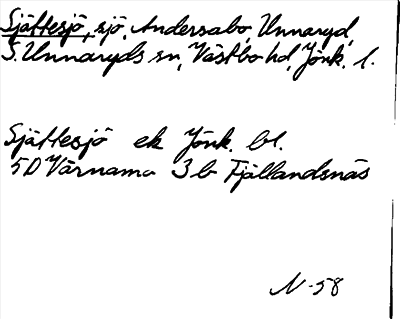 Sjättesjö, sjö, Andersabo, Unnaryd,
S. Unnaryds sn, Västbo hd, Jönk. l.
Sjättesjö ek Jönk. bl.
5D Värnamo 3b Fjällandsnäs
N-58